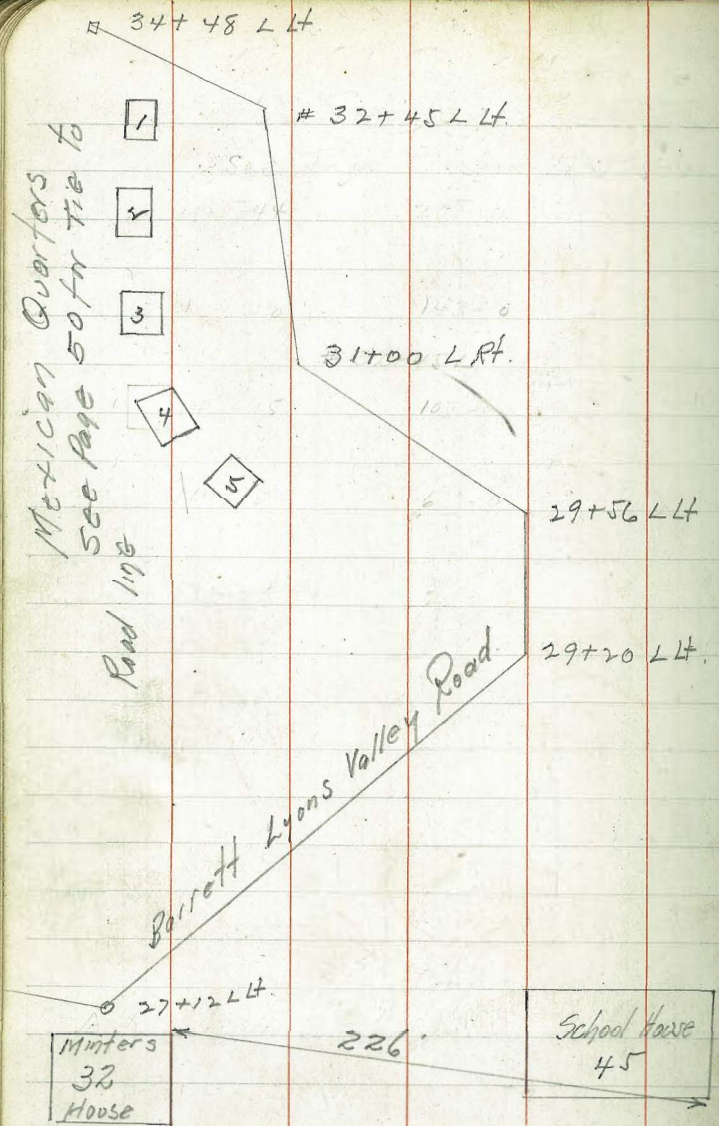 34+48 L Lt
# 32+45 L Lt.
1
2
3
4
5
Mexican Quarters
See Page 50 for Tie to
Road line
31+00 L Rt.
29+56 L Lt
29+20 L Lt.
Barrett Lyons Valley Road
27+12 L Lt.
226'
Minters
32
House
School House
45